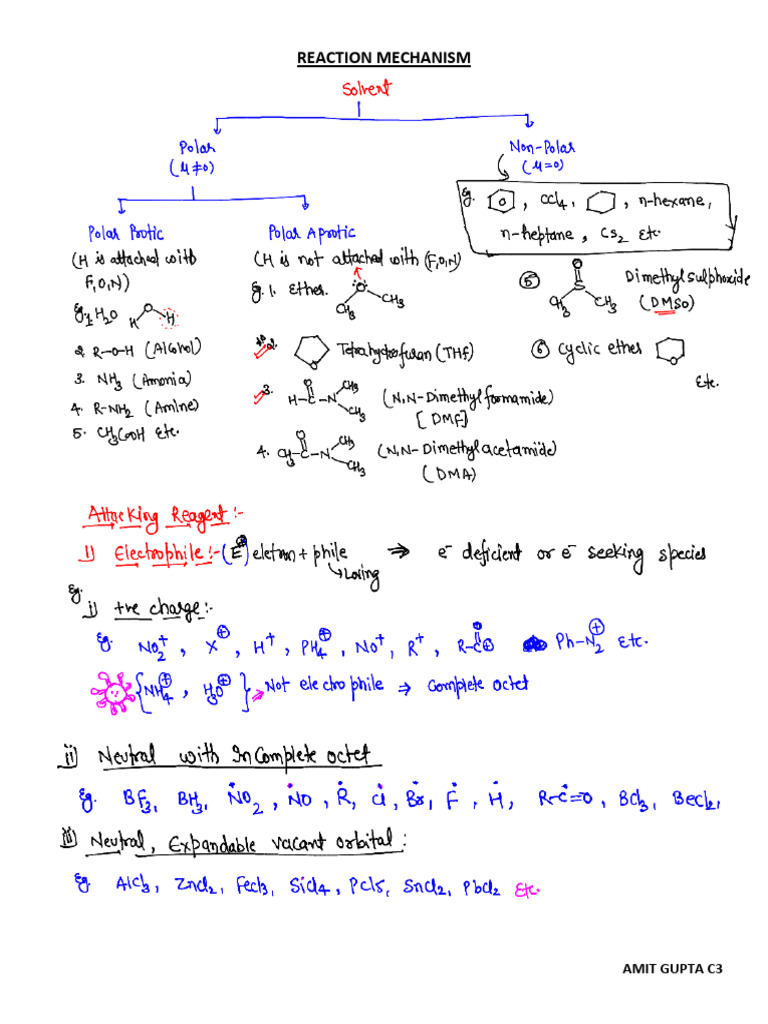 REACTION MECHANISM
Solvent
Polar
(μ≠0)
Non-Polar
(μ=0)
Eg. , CCl4, , n-hexane,
n-heptane, CS2 Etc
Polar Protic
(H is attached with
F,O,N)
Eg.1. H2O H O H
2. R-O-H (Alcohol)
3. NH3 (Amonia)
4. R-NH2 (Amine)
5. CH3COOH Etc.
Polar Aprotic
(H is not attached with (F,O,N)
Eg. 1. Ether. O CH3 CH3
2. O Tetrahydrofuran (THf)
3. H-C-N O CH3 CH3 (N,N-Dimethylformamide)
[DMF]
4. CH3-C-N O CH3 CH3 (N,N-Dimethylacetamide)
(DMA)
5 O S CH3 CH3 Dimethylsulphoxide
(DMSO)
6 Cyclic ether O
Etc.
Attacking Reagent :-
i) Electrophile :- (E⊕) eletron + phile ⇒ e⁻ deficient or e⁻ seeking species
Loving
Eg.
i) +ve charge :-
Eg. NO2+, X⊕, H+, PH4⊕, NO+, R+, R-C⊕ O Ph-N2⊕ Etc.
{NH4⊕, H3O⊕} ⇒ Not electrophile ⇒ Complete octet
ii) Neutral with InComplete octet
Eg. BF3, BH3, ṄO2, ṄO, Ṙ, Cl̇, Bṙ, Ḟ, Ḣ, R-Ċ=O, BCl3, BeCl2,
iii) Neutral, Expandable vacant orbital :
Eg AlCl3, ZnCl2, FeCl3, SiCl4, PCl5, SnCl2, PbCl2 Etc.
AMIT GUPTA C3